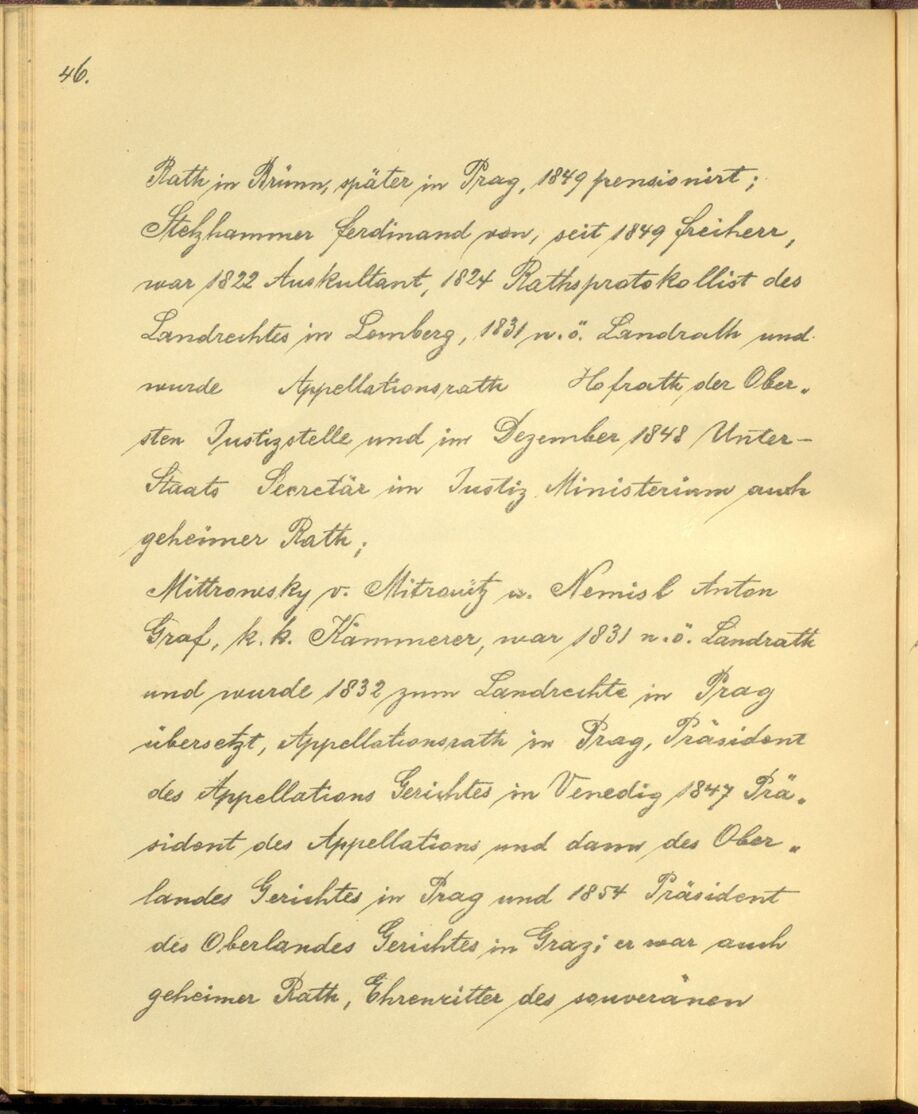 46.
Rath in Brünn, später in Prag, 1849 pensionirt;
Stelzhammer Ferdinand von, seit 1849 Freiherr,
war 1822 Auskultant, 1824 Rathsprotokollist des
Landrechtes in Lemberg, 1831 n. ö. Landrath und
wurde Appellationsrath Hofrath der Ober„
sten Justizstelle und im Dezember 1848 Unter-
Staats Secretär im Justiz Ministerium auch
geheimer Rath;
Mittrowsky v. Mitrowitz u. Nemisl Anton
Graf, k. k. Kämmerer, war 1831 n. ö. Landrath
und wurde 1832 zum Landrechte in Prag
übersetzt, Appellationsrath in Prag, Präsident
des Appellations Gerichtes in Venedig 1847 Prä„
sident des Appellations und dann des Ober„
landes Gerichtes in Prag und 1854 Präsident
des Oberlandes Gerichtes in Graz; er war auch
geheimer Rath, Ehrenritter des souveränen